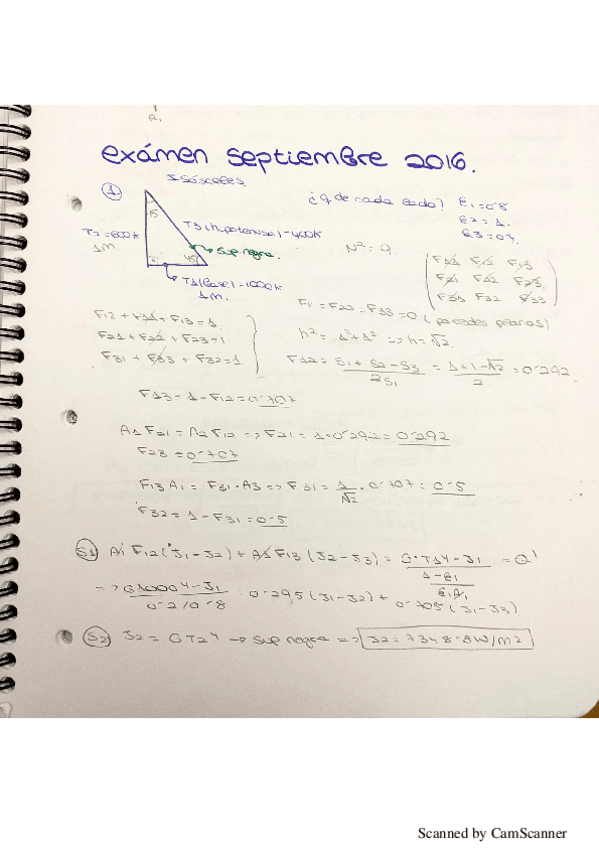 R.
exámen septiembre 2016.
Isósceles.
① ¿q de cada lado? E1=0'8
E2=1.
E3=0'7
15 T3(hipotenusa)=400K
T2=600K sup negra. N²=9.
1m. 45
T1(base)=1000K
1m.
F11 F12 F13
F21 F22 F23
F31 F32 F33
F1=F22=F33=0 (paredes planas)
F12+F11+F13=1
F21+F22+F23=1
F31+F33+F32=1
h²=1²+1² => h=√2.
F12=S1+S2-S3/2S1=1+1-√2/2=0'292
F13=1-F12=0'707
A1F21=A2F12 => F21=1·0'292=0'292
F23=0'707
F13A1=F31·A3 => F31=1/√2·0'707=0'5
F32=1-F31=0'5
S1 A1 F12(J1-J2)+A1 F13(J2-J3)=σ·T1⁴-J1/1-e1/e1A1=Q'
=> σ1000⁴-J1/0'2/0'8=0'295(J1-J2)+0'705(J1-J3)
S2 J2=σT2⁴ → sup negra => J2=7348'8W/m2
Scanned by CamScanner